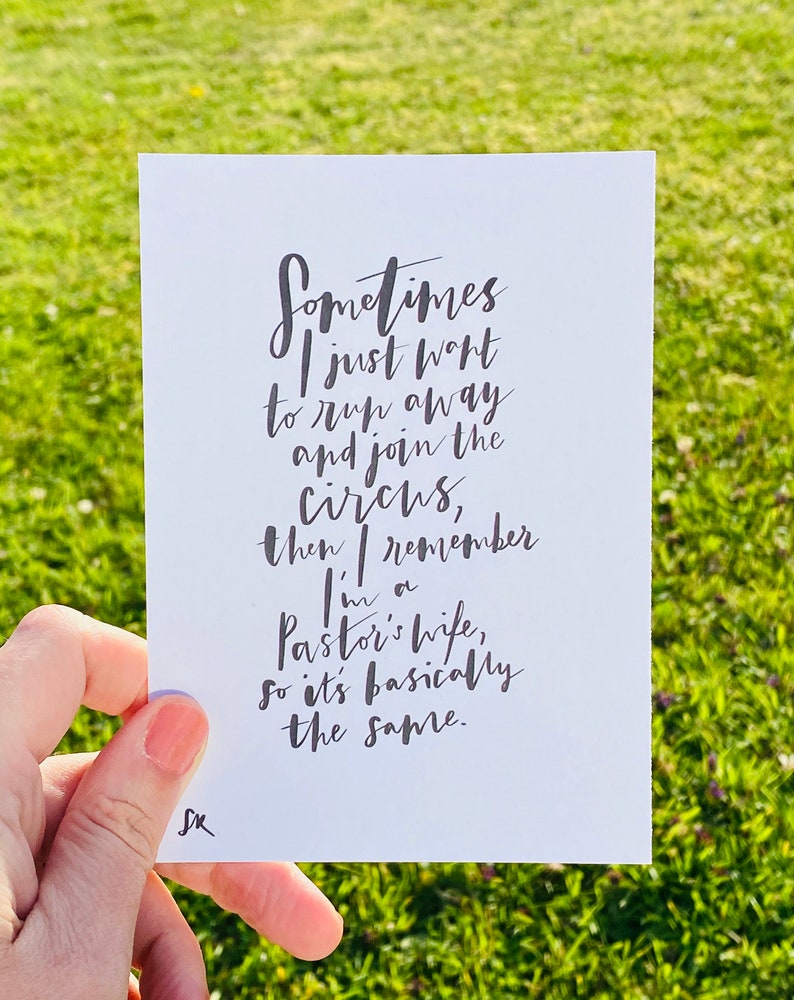 Sometimes
I just want
to run away
and join the
circus,
then I remember
I'm a
Pastor's Wife,
so it's basically
the same.
SK